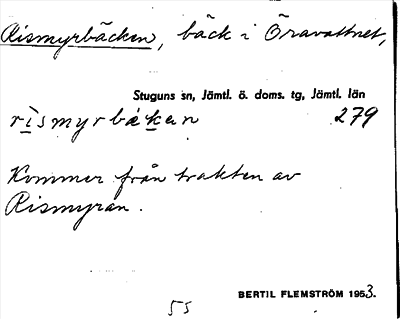 Rismyrbäcken, bäck i Öravattnet,
Stuguns sn, Jämtl. ö. doms. tg, Jämtl. län
rìsmyrbäkɐn 279
Kommer från trakten av
Rismyran.
BERTIL FLEMSTRÖM 1953.
55